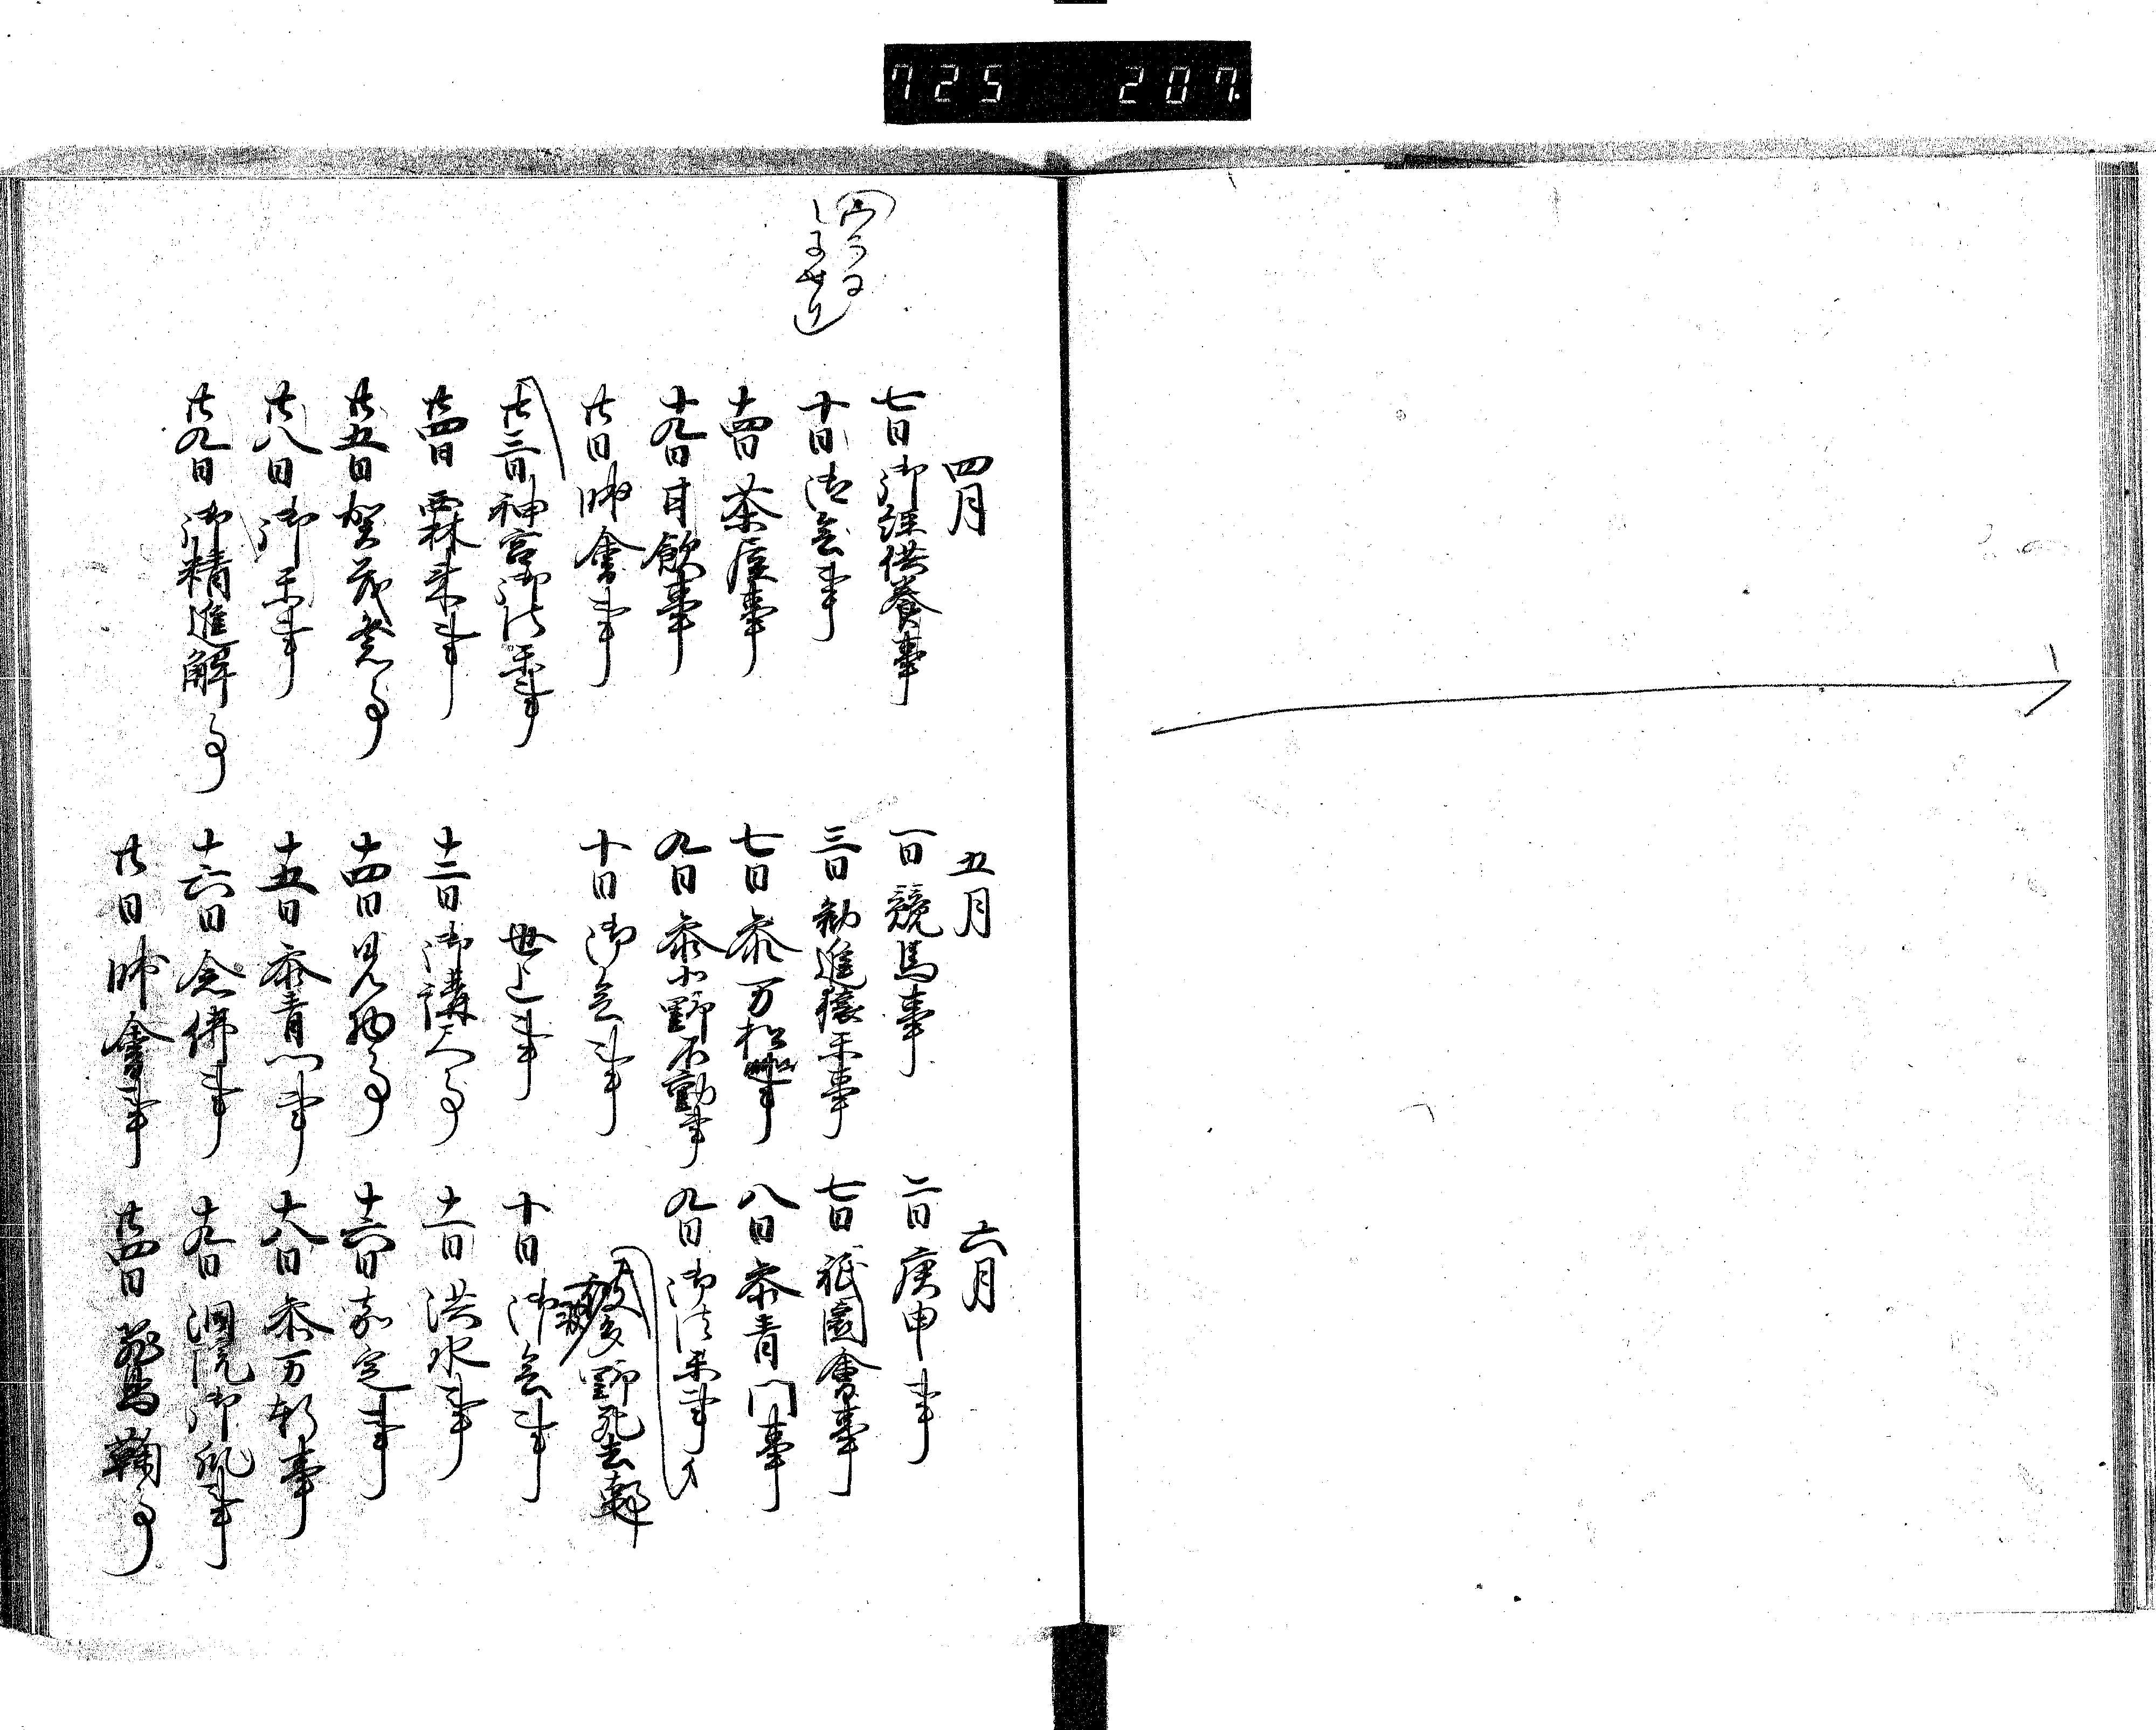 725 207
四月
七日御経供養事
十日御会事
十四日茶屋事
十九日甘飲事
廿日 會事
廿三日神宮御法楽事
廿四日栗林来事
廿五日賀茂 事
廿八日御楽事
廿九日御精進解事
五月
一日競馬事
三日勧進猿楽事
七日参万松事
九日参小野不動事
十日御会事
世上事
十三日御講 事
十四日見物事
十五日参青門事
十六日念佛事
廿日 會事
六月
二日庚申事
七日祇園會事
八日参青門事
九日御法楽事
野死去事
十日御会事
十一日洪水事
十六日嘉定事
十八日参万松事
十九日 御 事
廿四日 鞠事